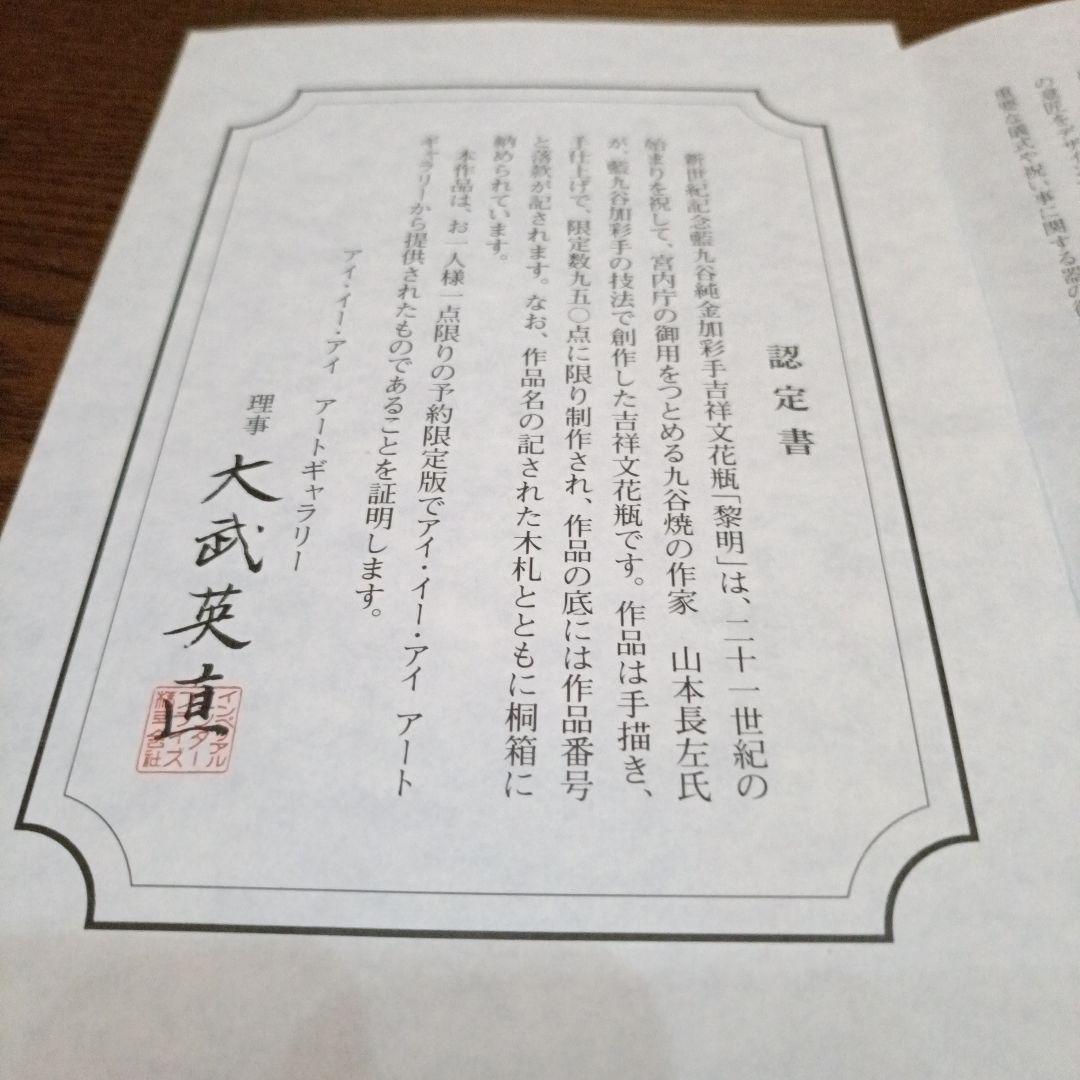 認定書
新世紀記念藍九谷純金加彩手吉祥文花瓶「黎明」は、二十一世紀の
始まりを祝して、宮内庁の御用をつとめる九谷焼の作家　山本長左氏
が、藍九谷加彩手の技法で創作した吉祥文花瓶です。作品は手描き、
手仕上げで、限定数九五〇点に限り制作され、作品の底には作品番号
と落款が記されます。なお、作品名の記された木札とともに桐箱に
納められています。
本作品は、お一人様一点限りの予約限定版でアイ・イー・アイ　アート
ギャラリーから提供されたものであることを証明します。
アイ・イー・アイ　アートギャラリー
理事　大武英直
インペリアル
の意匠をデザイ
重要な儀式や祝い事に関する器の